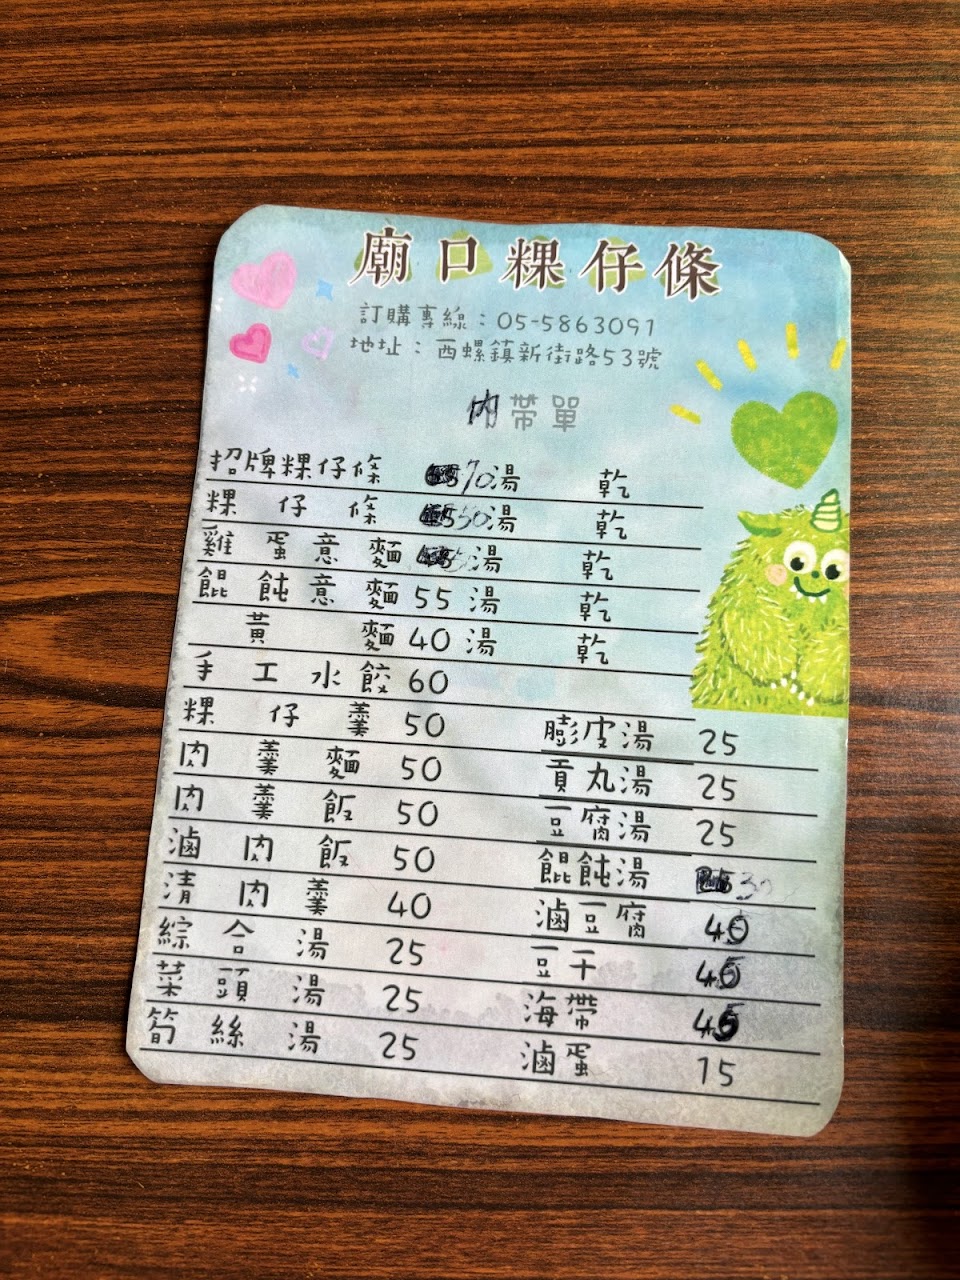 廟口粿仔條
訂購專線：05-5863091
地址：西螺鎮新街路53號
內帶單
招牌粿仔條 70湯 乾
粿仔條 50湯 乾
雞蛋意麵 湯 乾
餛飩意麵 55 湯 乾
黃麵 40 湯 乾
手工水餃 60
粿仔羹 50
肉羹麵 50
肉羹飯 50
滷肉飯 50
清肉羹 40
綜合湯 25
菜頭湯 25
筍絲湯 25
膨皮湯 25
貢丸湯 25
豆腐湯 25
餛飩湯 30
滷豆腐 40
豆干 40
海帶 45
滷蛋 15